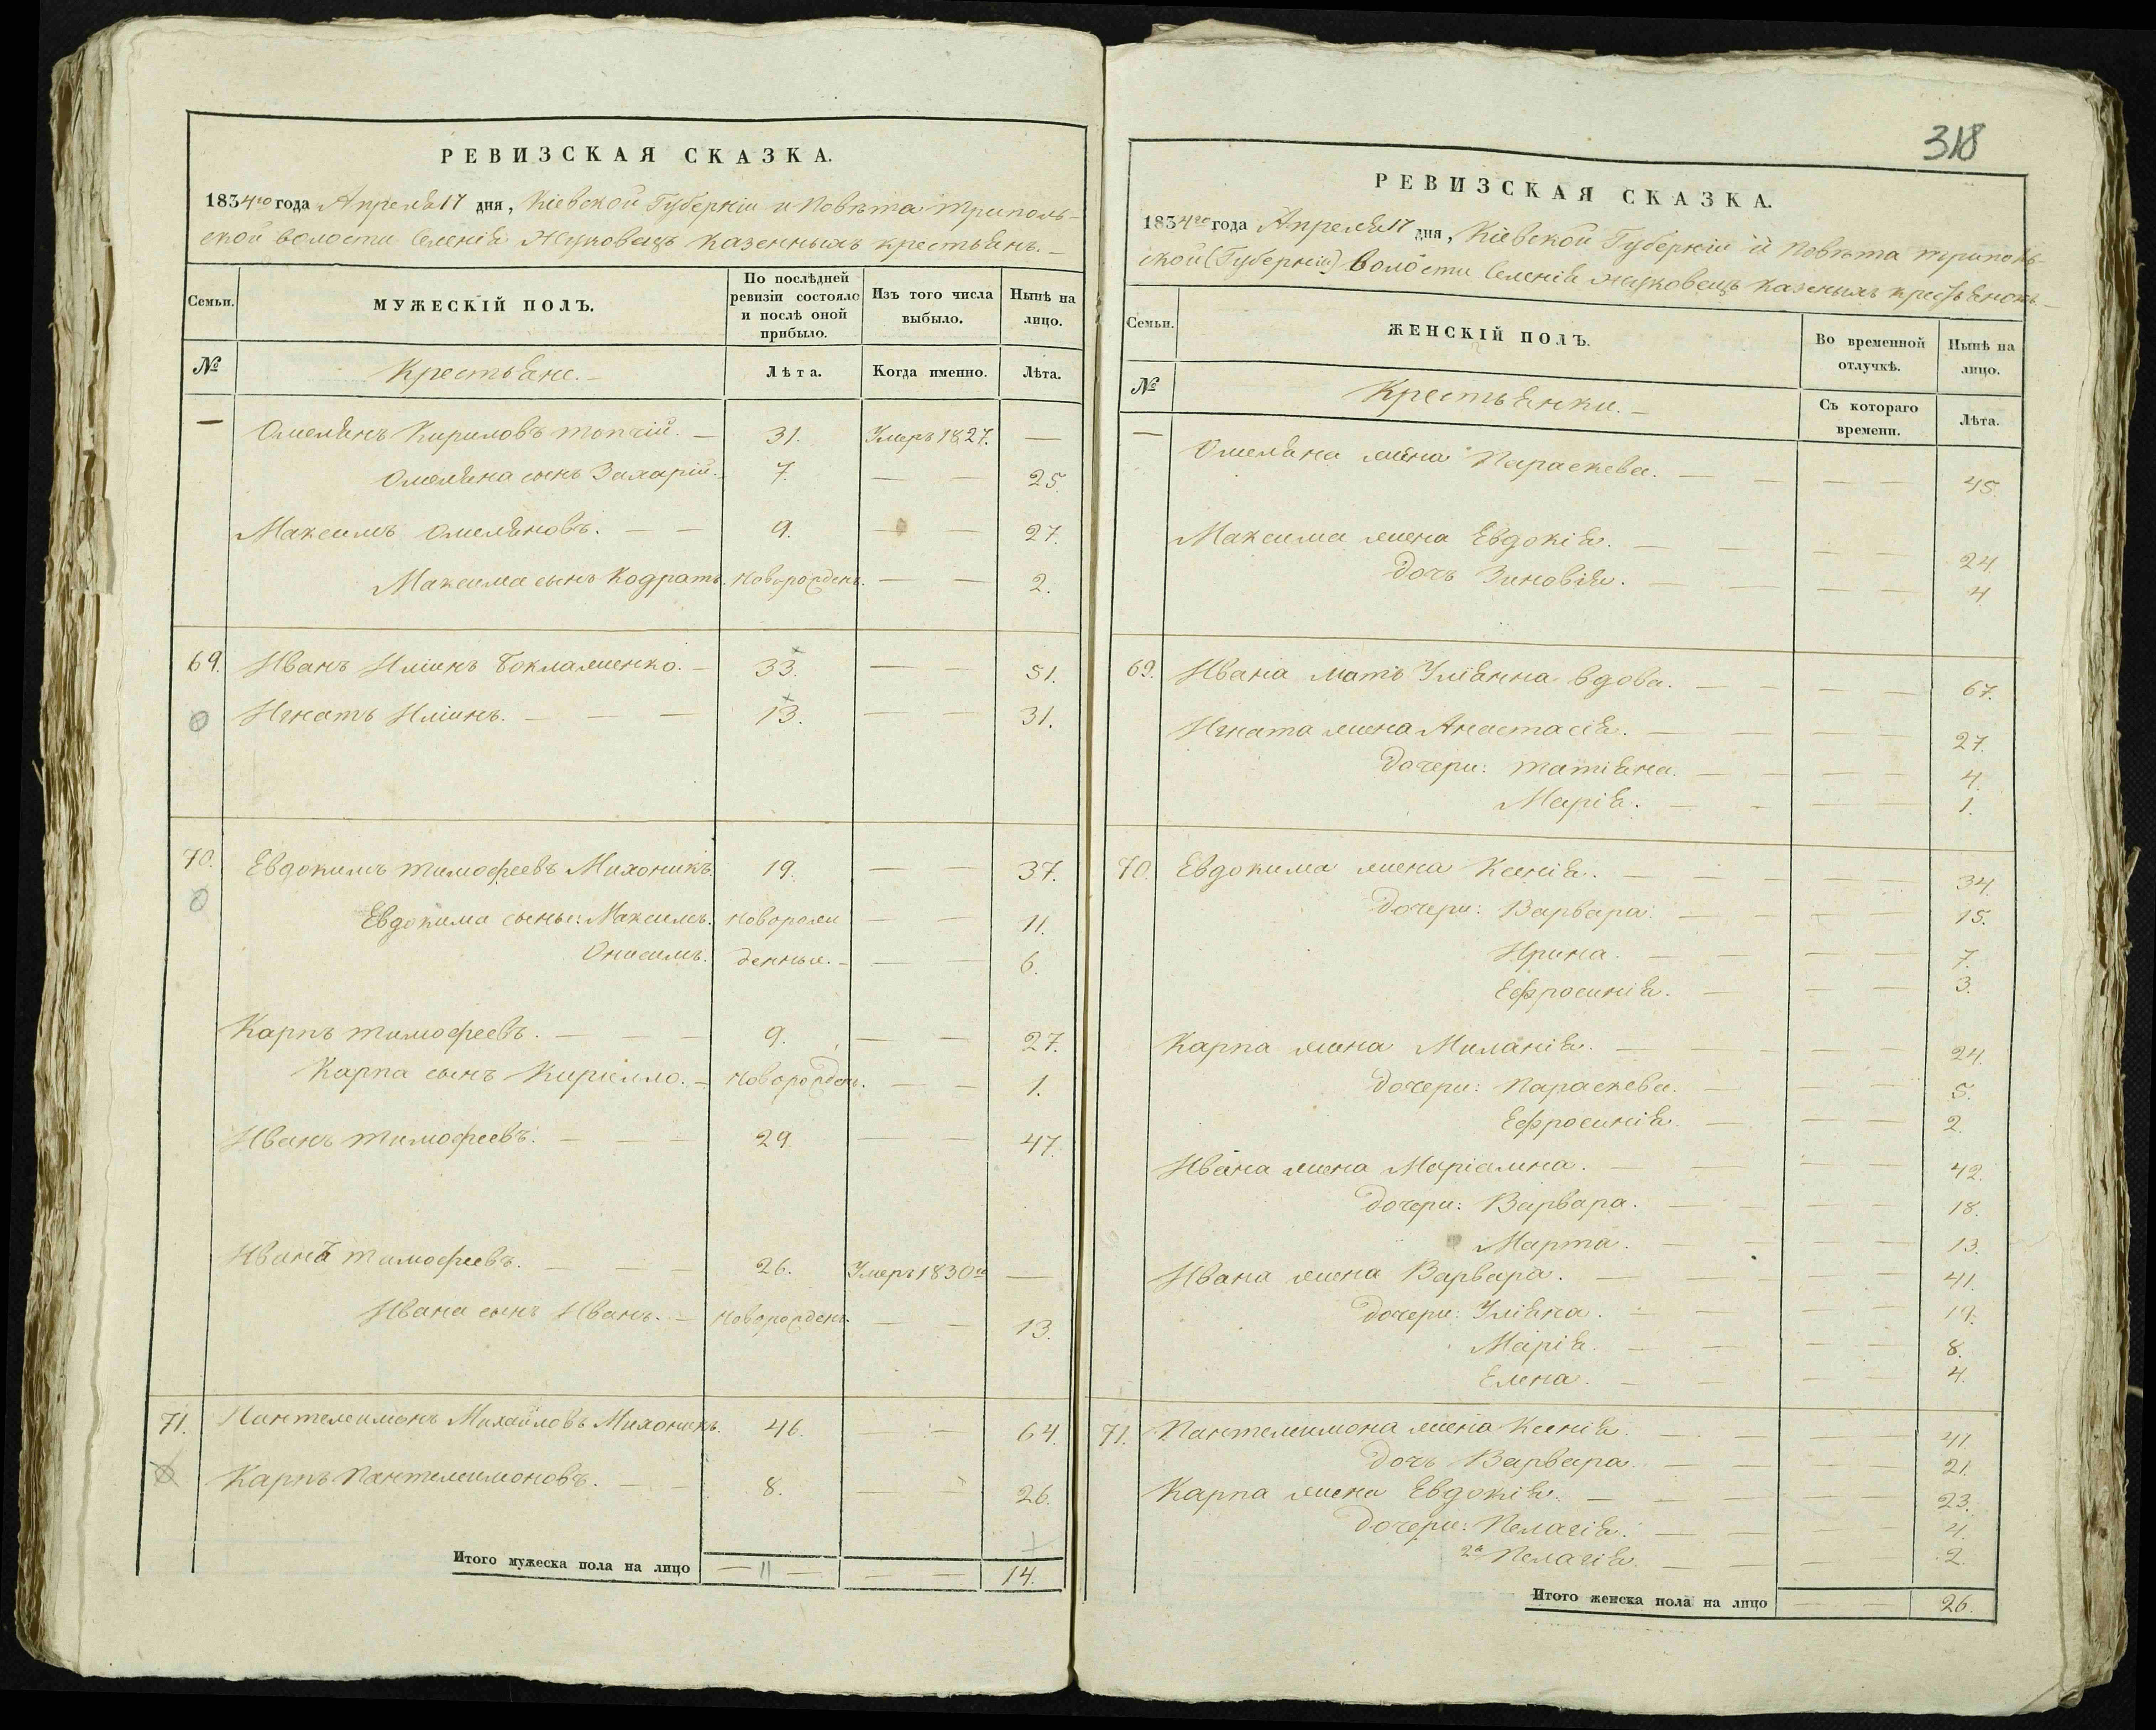 РЕВИЗСКАЯ СКАЗКА.
1834го года Апреля 17 дня, Кіевской Губерніи и Повѣта Триполь-
ской волости Селенія Жуковецъ Казенныхъ крестьянъ.—
Семьи. МУЖЕСКІЙ ПОЛЪ. По послѣдней ревизіи состояло и послѣ оной прибыло. Изъ того числа выбыло. Нынѣ на лицо.
№ Крестьяне.— Лѣта. Когда именно. Лѣта.
— Омелянъ Кириловъ Топчій. — 31. Умеръ 1827. —
Омеляна сынъ Захарій. 7. — — 25.
Максимъ Омеляновъ. — — 9. — — 27.
Максима сынъ Кодратъ. новорожденъ. — — 2.
69. Иванъ Иліинъ Боклаженко. — 33. — — 51.
Игнатъ Иліинъ. — — — 13. — — 31.
70. Евдокимъ Тимофеевъ Михоникъ. 19. — — 37.
Евдокима сыны: Максимъ. новорож — — 11.
Онисимъ. денные. — — — 6.
Карпъ Тимофеевъ. — — — 9. — — 27.
Карпа сынъ Кирилло. — новорожденъ. — — 1.
Иванъ Тимофеевъ. — — — 29. — — 47.
Иванъ Тимофеевъ. — — — 26. Умеръ 1830го —
Ивана сынъ Иванъ. — новорожденъ. — — 13.
71. Пантелеимонъ Михайловъ Михоникъ. 46. — — 64.
Карпъ Пантелеимоновъ. — — 8. — — 26.
Итого мужеска пола на лицо — 11 — — — 14.
318
РЕВИЗСКАЯ СКАЗКА.
1834го года Апреля 17 дня, Кіевской Губерніи и Повѣта Триполь-
ской (Губерніи) волости Селенія Жуковецъ казеныхъ крестьянокъ—
Семьи. ЖЕНСКІЙ ПОЛЪ. Во временной отлучкѣ. Нынѣ на лицо.
№ Крестьянки.— Съ котораго времени. Лѣта.
— Омеляна жена Параскева. — — — — 45.
Максима жена Евдокія. — — — — 24
Дочь Зиновія. — — — — 4
69. Ивана мать Уліянна вдова. — — — — 67.
Игната жена Анастасія. — — — — 27.
Дочери: Татіяна. — — — — 4.
Марія. — — — — 1.
70. Евдокима жена Ксенія. — — — — 34.
Дочери: Варвара. — — — — 15.
Ирина. — — — — 7.
Ефросинія. — — — 3.
Карпа жена Миланія. — — — — 24.
Дочери: Параскева. — — — 5.
Ефросинія. — — — 2.
Ивана жена Маріамна. — — — 42.
Дочери: Варвара. — — — — 18.
Марта. — — — — 13.
Ивана жена Варвара. — — — — 41.
Дочери: Уліяна. — — — — 17.
Марія. — — — — 8.
Елена. — — — — 4.
71. Пантелеимона жена Ксенія. — — — — 41.
Дочь Варвара. — — — — 21.
Карпа жена Евдокія. — — — — 23.
Дочери: Пелагія. — — — — 4.
2я Пелагія. — — — 2
Итого женска пола на лицо — — 26.